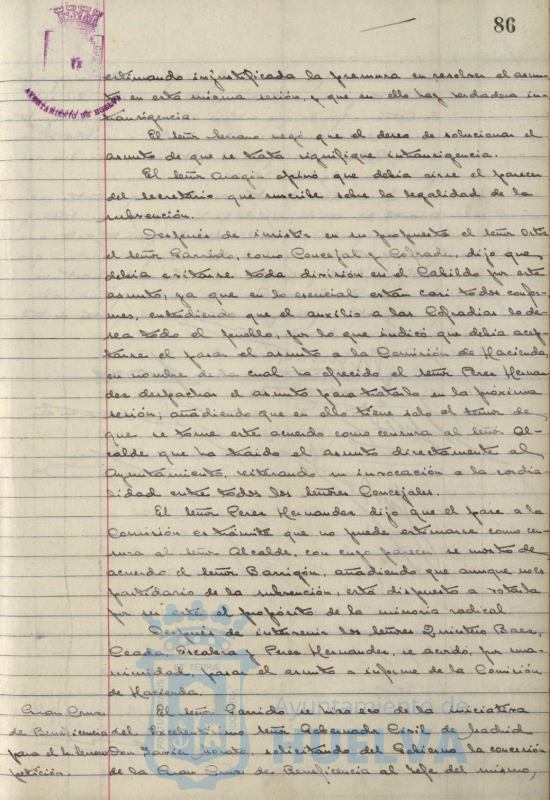 86
AYUNTAMIENTO DE HUELVA
estimando injustificada la premura en resolver el asun-
to en esta misma sesión, y que en ello hay verdadera in-
transigencia.
El señor Serrano negó que el deseo de solucionar el
asunto de que se trata signifique intransigencia.
El señor Aragón opinó que debia oirse el parecer
del secretario que suscribe sobre la legalidad de la
subvención.
Después de insistir en su propuesta el señor
el señor Garrido, como Concejal y Cofrade, dijo que
debia evitarse toda división en el Cabildo por este
asunto, ya que en lo esencial están casi todos confor-
mes, entendiendo que el auxilio a las Cofradias lo de-
sea todo el pueblo, por lo que indicó que debia acep-
tarse el pasar el asunto a la Comisión de Hacienda,
en nombre de la cual ha ofrecido el señor Perez Hernan-
dez despachar el asunto para tratarlo en la próxima
sesión; añadiendo que en ello tiene solo el temor de
que se tome este acuerdo como censura al señor Al-
calde que ha traido el asunto directamente al
Ayuntamiento, reiterando su invocación a la cordia-
lidad entre todos los señores Concejales.
El señor Perez Hernandez dijo que el pase a la
Comisión es trámite que no puede estimarse como cen-
sura al señor Alcalde, con cuyo parecer se mostró de
acuerdo el señor Barrigón, añadiendo que aunque no es
partidario de la subvención, está dispuesto a votarla
por ser este el propósito de la minoria radical.
Después de intervenir los señores Quintero Baez,
Ceada, Escalera y Perez Hernandez, se acordó, por una-
nimidad, pasar el asunto a informe de la Comisión
de Hacienda.
Gran Cruz
de Beneficencia
para el
petición.
El señor Garrido se hizo eco de la iniciativa
del Excelentisimo señor Gobernador Civil de Madrid
Don Javier Morata, solicitando del Gobierno la concesión
de la Gran Cruz de Beneficencia al Jefe del mismo,
Ayuntamiento de
HUELVA